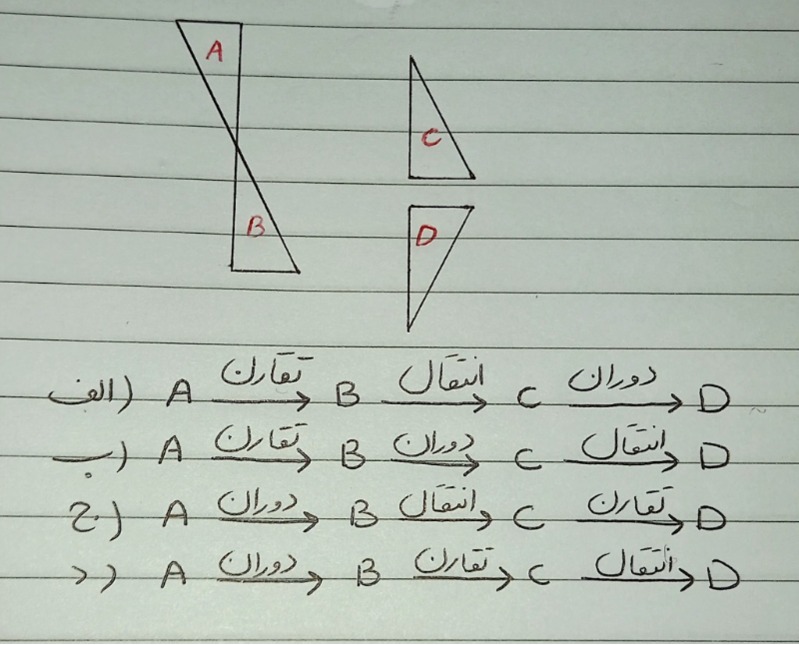 A
C
B
D
الف) A تقارن B انتقال C دوران D
ب) A تقارن B دوران C انتقال D
ج) A دوران B انتقال C تقارن D
د) A دوران B تقارن C انتقال D